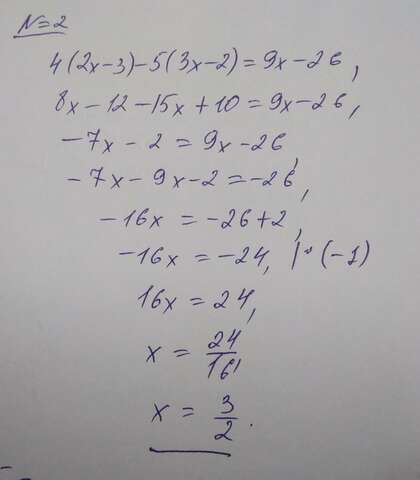 N=2
4(2x-3)-5(3x-2)=9x-26,
8x-12-15x+10=9x-26,
-7x-2=9x-26,
-7x-9x-2=-26,
-16x=-26+2,
-16x=-24, |·(-1)
16x=24,
x=24/16,
x=3/2.